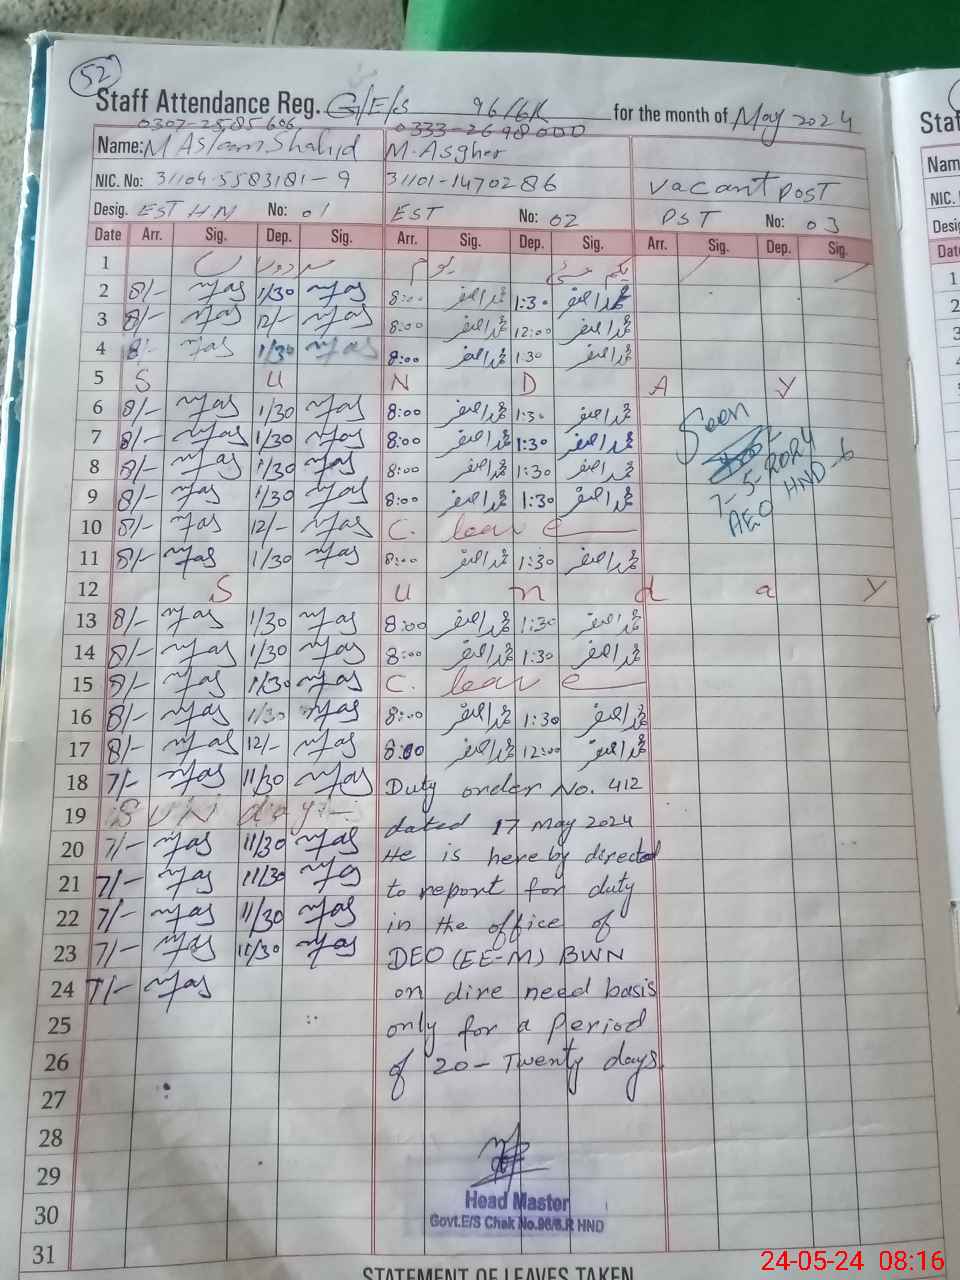 52
Staff Attendance Reg. G/E/S 96/6R for the month of May 2024
0307-2585606 0333-2698000
Name: M Aslam Shahid M. Asgher
NIC. No: 31104-5583181-9 31101-1470286 Vacant Post
Desig. EST HM No: 01 EST No: 02 PST No: 03
Date Arr. Sig. Dep. Sig. Arr. Sig. Dep. Sig. Arr. Sig. Dep. Sig.
1 یکم مئی یوم مزدوراں
2 8/- 1/30 8:00 محمد اصغر 1:30 محمد اصغر
3 8/- 12/- 8:00 محمد اصغر 12:00 محمد اصغر
4 8/- 1/30 8:00 محمد اصغر 1:30 محمد اصغر
5 S U N D A Y
6 8/- 1/30 8:00 محمد اصغر 1:30 محمد اصغر
7 8/- 1/30 8:00 محمد اصغر 1:30 محمد اصغر
8 8/- 1/30 8:00 محمد اصغر 1:30 محمد اصغر
9 8/- 1/30 8:00 محمد اصغر 1:30 محمد اصغر
10 8/- 12/- C. leave
11 8/- 1/30 8:00 محمد اصغر 1:30 محمد اصغر
Seen
7-5-2024
AEO HND-6
12 S u n d a y
13 8/- 1/30 8:00 محمد اصغر 1:30 محمد اصغر
14 8/- 1/30 8:00 محمد اصغر 1:30 محمد اصغر
15 8/- 1/30 C. leave
16 8/- 1/30 8:00 محمد اصغر 1:30 محمد اصغر
17 8/- 12/- 8:00 محمد اصغر 12:00 محمد اصغر
18 7/- 11/30 Duty order No. 412
19 SUNday dated 17 May 2024
20 7/- 11/30 He is here by directed
21 7/- 11/30 to report for duty
22 7/- 11/30 in the office of
23 7/- 11/30 DEO (EE-M) BWN
24 7/- on dire need basis
25 only for a Period
26 of 20-Twenty days.
27
28
29
30
31
Head Master
Govt.E/S Chak No.96/6.R HND
STATEMENT OF LEAVES TAKEN
Staf
Nam
NIC.
Desig
Dat
1
2
3
4
24-05-24 08:16